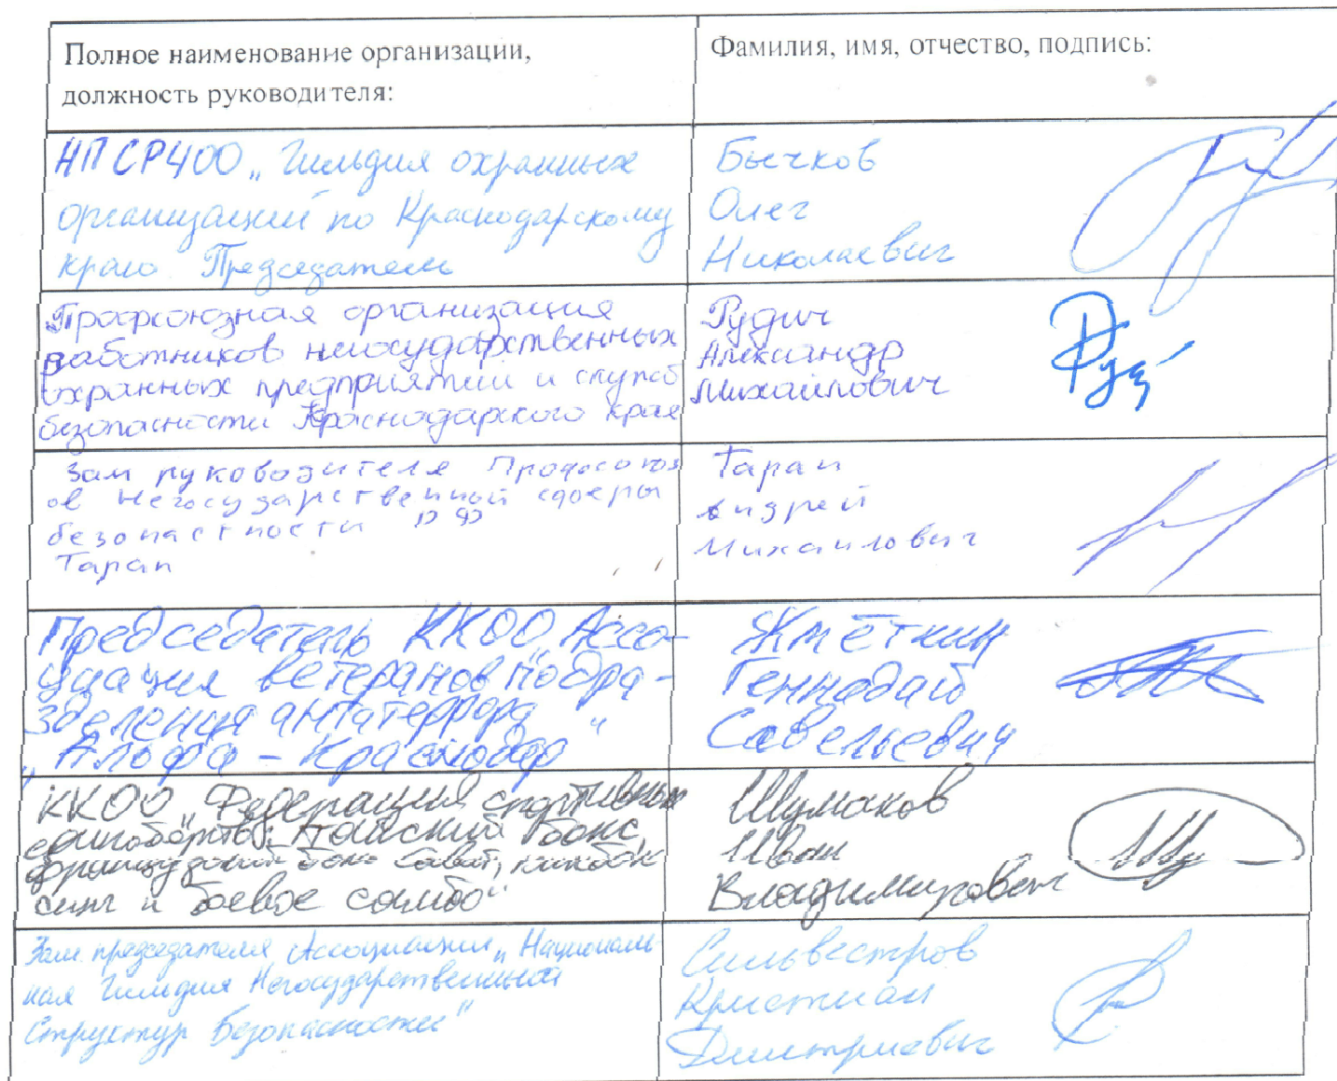 Полное наименование организации,
должность руководителя:
Фамилия, имя, отчество, подпись:
НПСРЧОО „Гильдия охранных
организаций по Краснодарскому
краю Председатель
Бычков
Олег
Николаевич
Профсоюзная организация
работников негосударственных
охранных предприятий и служб
безопасности Краснодарского края
Рудич
Александр
Михайлович
Зам руководителя Профсоюз
ов Негосударственный сферы
безопастности РФ
Таран
Таран
Андрей
Михайлович
Председатель ККОО „Ассо-
циация ветеранов подра-
зделения антитеррора
„Альфа - Краснодар“
Жмёткин
Геннадий
Савельевич
ККОО „Федерация спортивных
единоборств: тайский бокс,
французский бокс сават, кикбок
синг и боевое самбо“
Шумаков
Иван
Владимирович
Зам. председателя Ассоциации „Националь-
ная Гильдия Негосударственной
Структур Безопасности“
Сильвестров
Кристиан
Дмитриевич